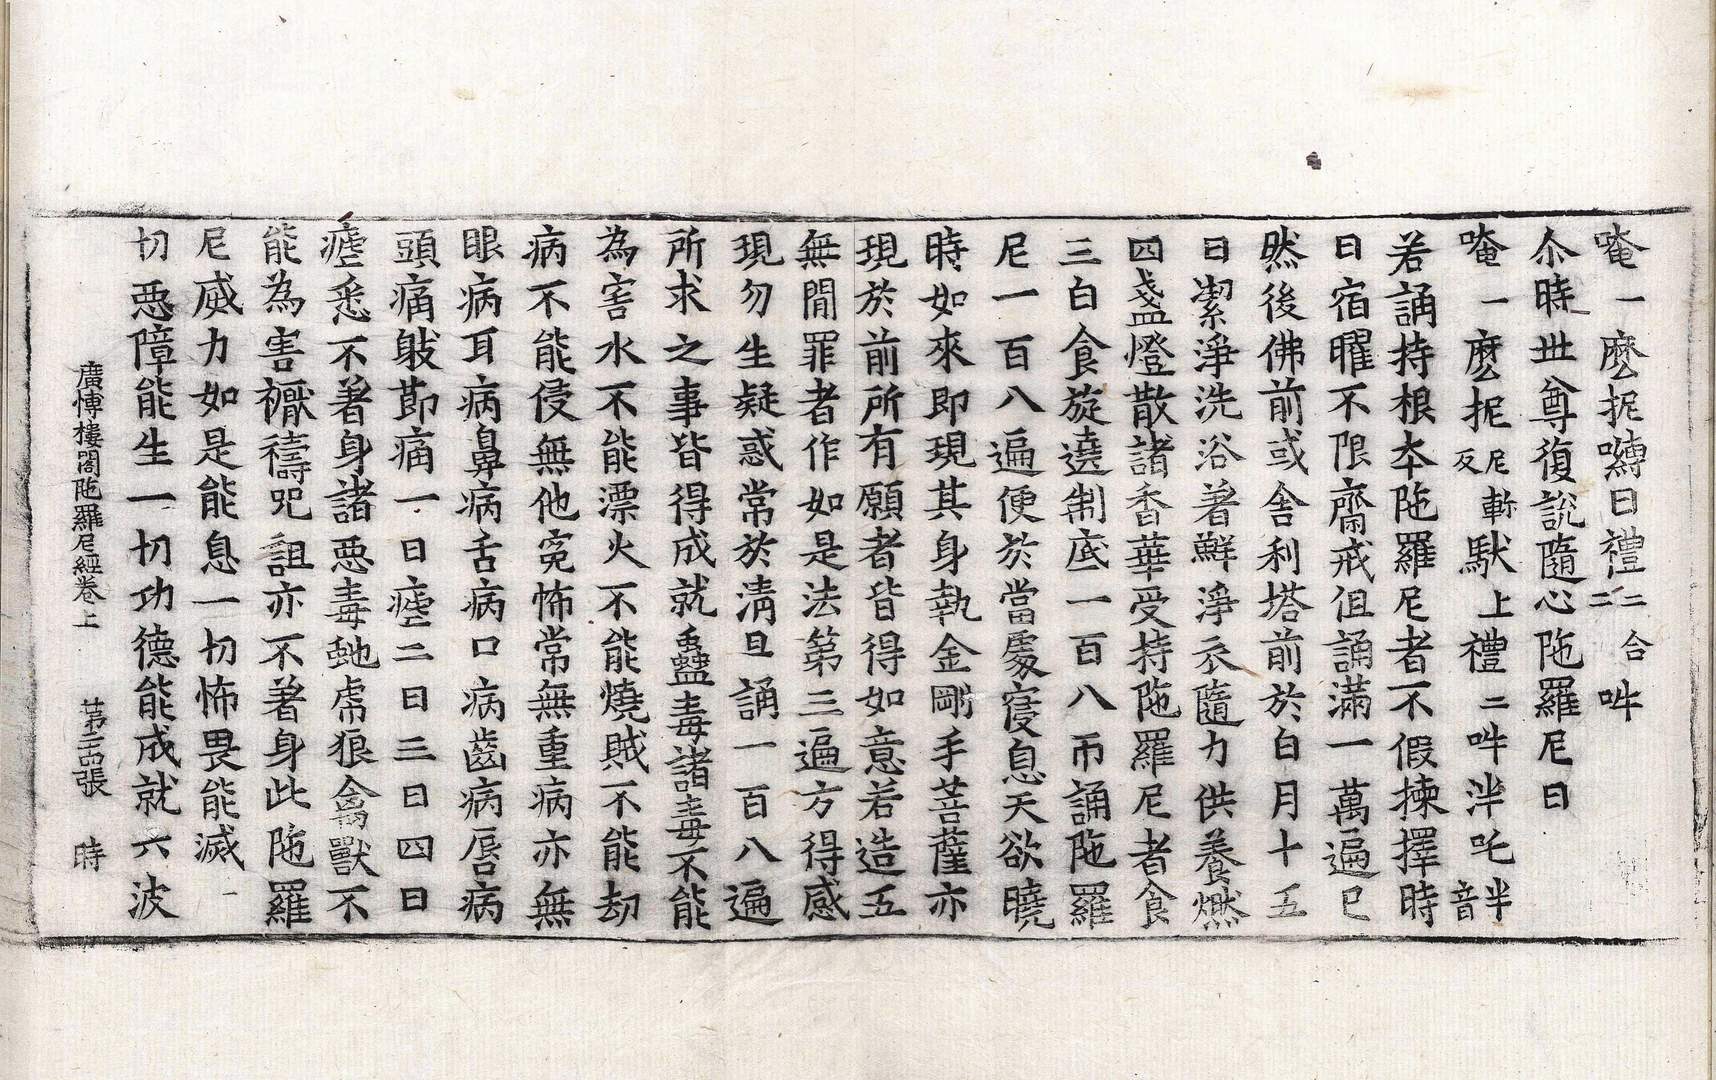 唵一麽抳嚩日禮二合二吽
尒時世尊復說隨心陁羅尼曰
唵一麽抳尼反斬馱上禮二吽泮吒半音
若誦持根本陁羅尼者不假揀擇時
日宿曜不限齋戒但誦滿一萬遍已
然後佛前或舍利塔前於白月十五
日潔淨洗浴著鮮淨衣隨力供養燃
四盞燈散諸香華受持陁羅尼者食
三白食旋遶制底一百八帀誦陁羅
尼一百八遍便於當處寑息天欲曉
時如來即現其身執金剛手菩薩亦
現於前所有願者皆得如意若造五
無閒罪者作如是法第三遍方得感
現勿生疑惑常於淸旦誦一百八遍
所求之事皆得成就蠱毒諸毒不能
為害水不能漂火不能燒賊不能劫
病不能侵無他寃怖常無重病亦無
眼病耳病鼻病舌病口病齒病脣病
頭痛躄莭痛一日瘧二日三日四日
瘧悉不著身諸惡毒虵虎狼禽獸不
能為害禰禱呪詛亦不著身此陁羅
尼威力如是能息一切怖畏能滅一
切惡障能生一切功德能成就六波
廣愽樓閣陁羅尼經卷上　苐十四張　時